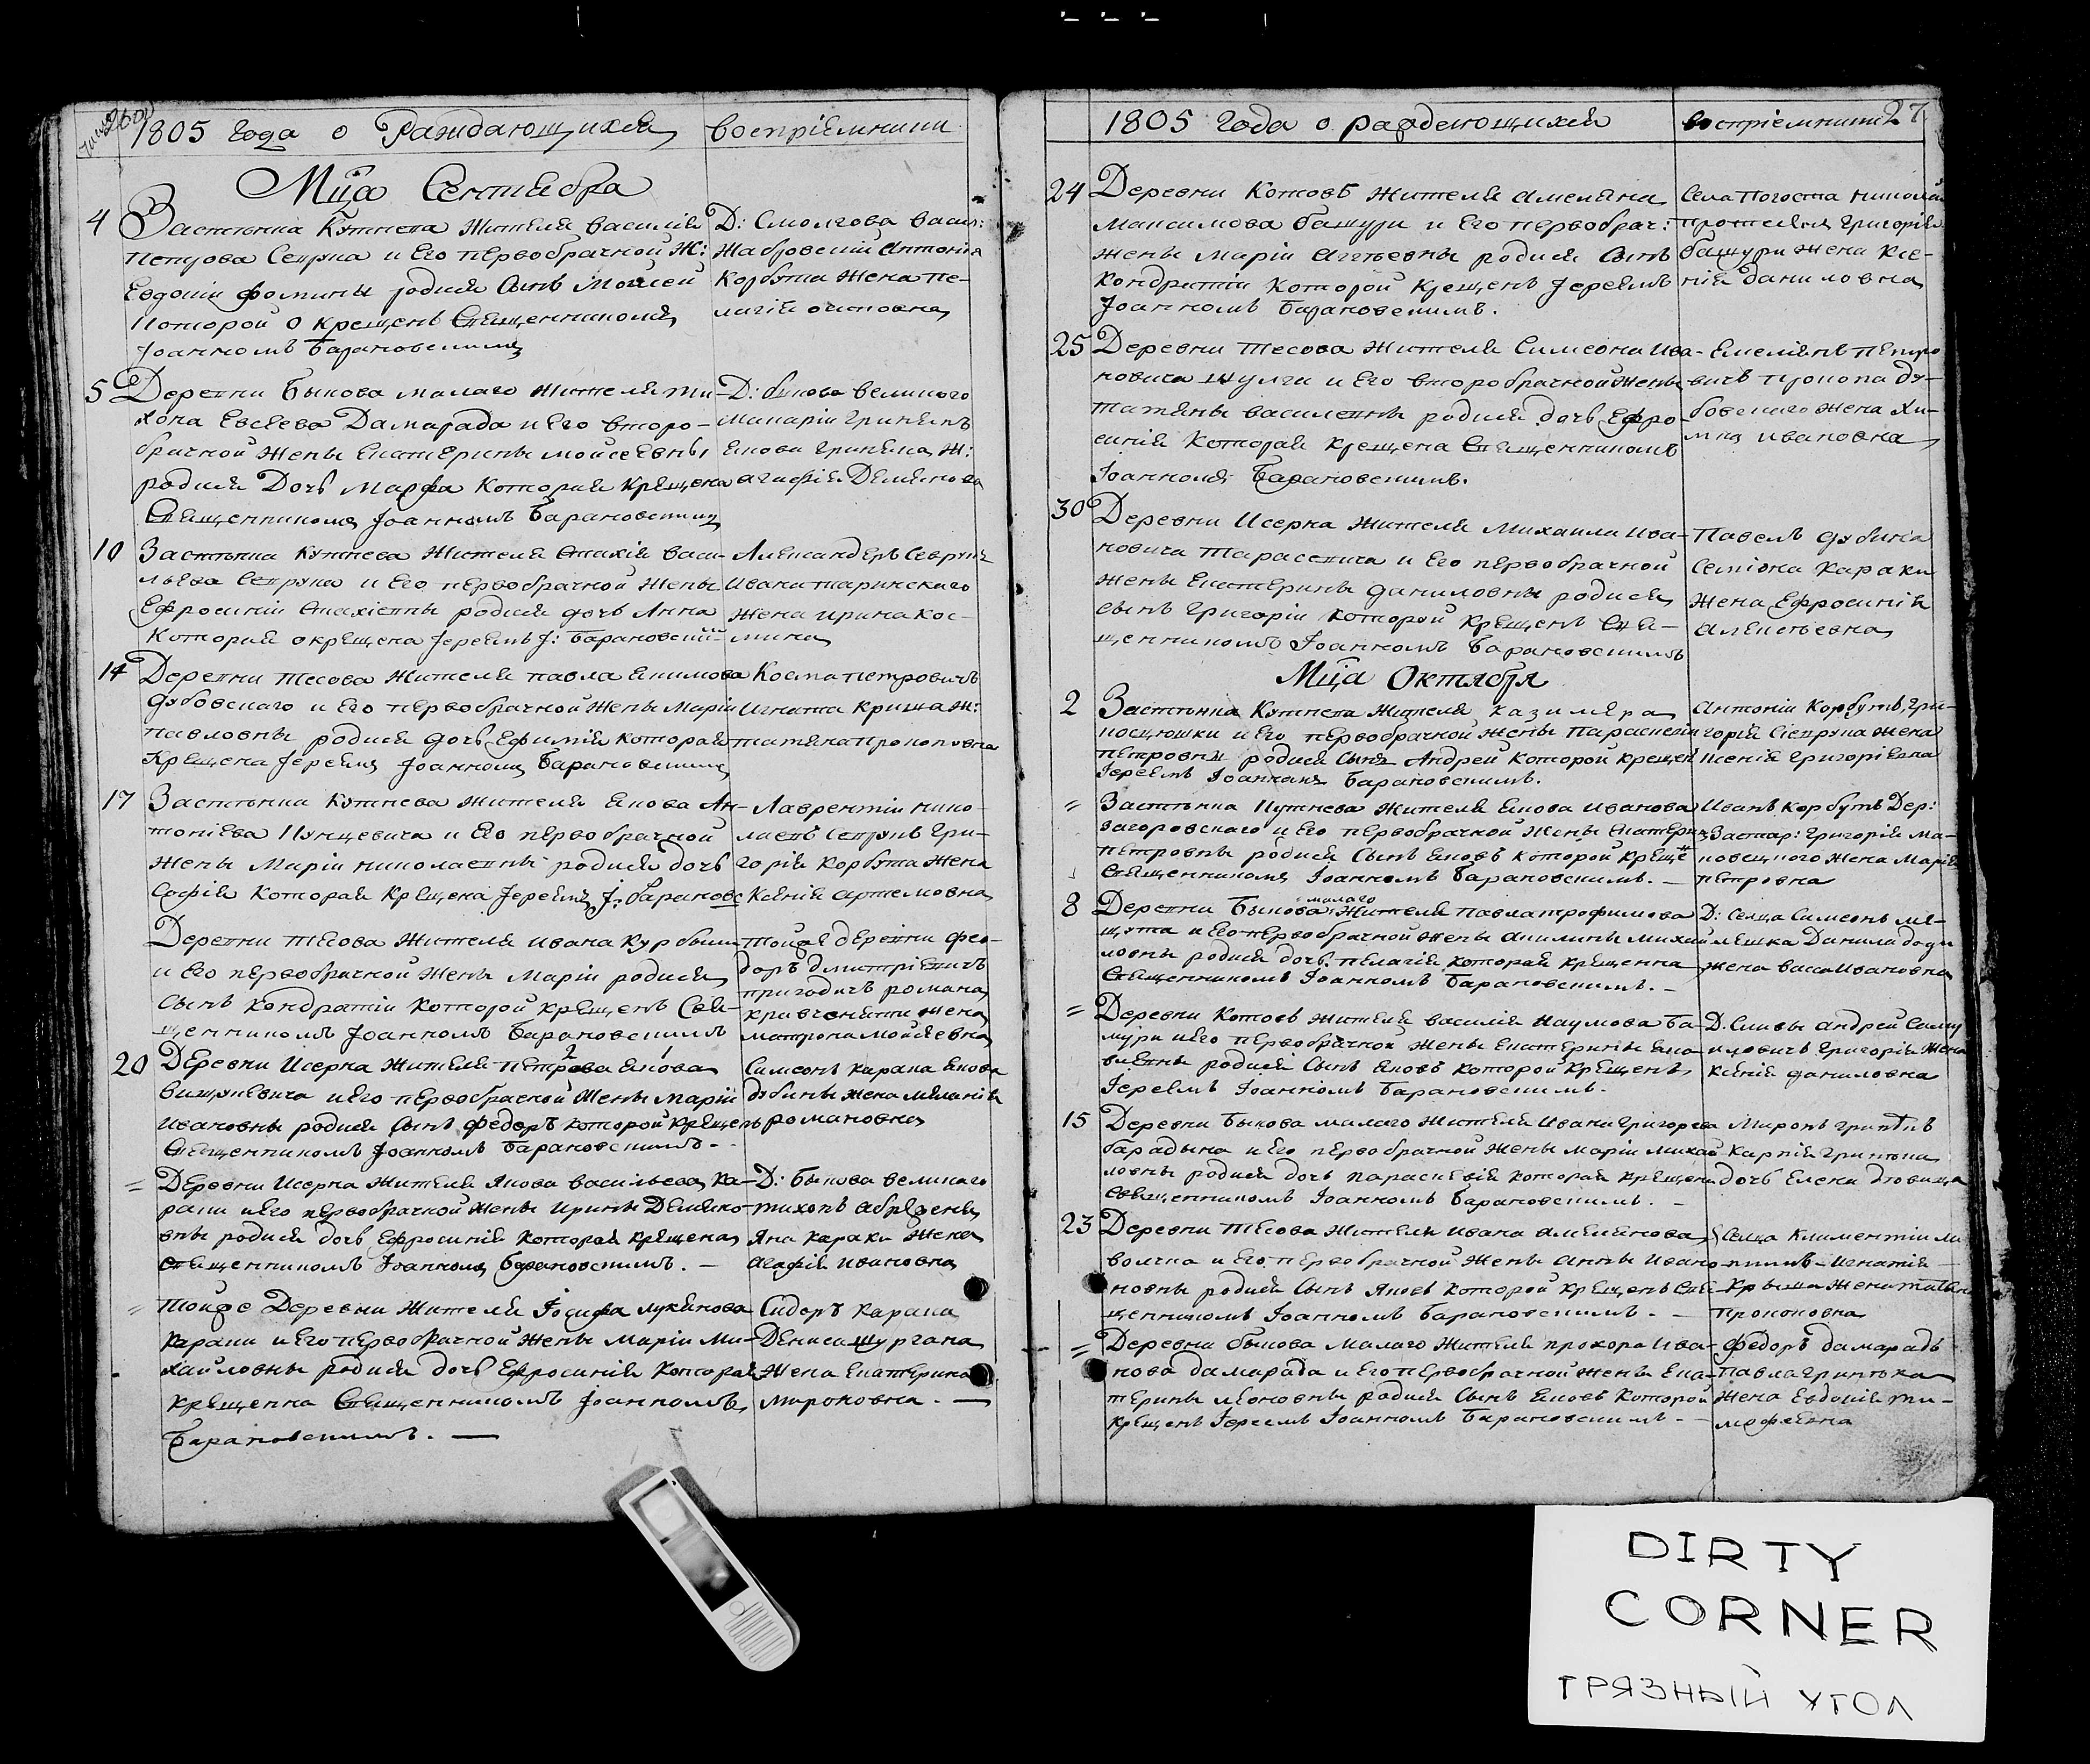 1805 года о Раждающихся
воспріемники
Мца Сентября
4 Застѣнка Кутнева Жителя Василія
Петрова Севрука и Его первобрачной Ж:
Евдокіи Фомины родися Сынъ Моисей
Которой Окрещенъ Священникомъ
Іоанномъ Барановскимъ
Д: Смолгова Васил:
Жабровскій Антонія
Корбута Жена Пе-
лагія
5 Деревни Быкова малаго Жителя Ти-
хона Евсеева Дамарада и Его второ-
брачной Жены Екатерины Мойсеевны
родися Дочь Марфа Которая Крещена
Священникомъ Іоанномъ Барановскимъ
Д: быкова великого
Макарій Гринякъ
Якова Гриняка Ж:
агафія Демянова
10 Застѣнка Кутнева Жителя Васи-
льева Севрука и Его первобрачной Жены
Ефросиніи родися дочь Анна
Которая окрещена Іереемъ І: Барановскій
Александеръ Севрукъ
Ивана
Жена ирина Кос-
мина
14 Деревни Тесова Жителя павла Якимова
Дубовскаго и Его первобрачной Жены Маріи
павловны родися дочь Ефимія Которая
Крещена Іереемъ Іоанномъ Барановскимъ
Косма петровичъ
Игната Криша Ж:
татяна прокоповна
17 Застѣнка Кутнева Жителя Якова Ан-
тоніева Кунцевича и Его первобрачной
Жены Маріи николаевны родися дочь
Софія Которая Крещена Іереемъ І: Барановс
Лаврентій нико-
лаевъ Севрукъ Гри-
горія Корбута Жена
Ксенія артемовна
Деревни Тесова Жителя ивана
и Его первобрачной Жены Маріи родися
Сынъ Кондратій Которой крещенъ Свя-
щенникомъ Іоанномъ Барановскимъ
Тойже деревни фео-
доръ дмитріевичъ
пригодичъ романа
жена
матрона мойсеевна
20 Деревни Исерна Жителя петрова Якова
и Его первобрачной Жены Маріи
ивановны родися Сынъ федоръ которой крещенъ
Священникомъ Іоанномъ Барановскимъ -
Симеонъ карака Якова
дубины жена меланія
романовна
= Деревни Исерна Жителя Якова васильева Ка-
раки и Его первобрачной Жены ирины Демяно-
вны родися дочь Ефросинія Которая крещена
священникомъ Іоанномъ Барановскимъ. -
Д: Быкова великаго
тихонъ
Яна караки жена
агафія ивановна
= Тойже Деревни Жителя Іосифа лукянова
Караки и Его первобрачной Жены Маріи Ми-
хайловны родися дочь Ефросинія Которая
крещенна Священникомъ Іоанномъ
Барановскимъ. -
Сидоръ Карака
Дениса шургана
Жена Екатерина
мироновна. -
1805 года о раждающихся
воспріемники 27
24 Деревни Котовъ Жителя амеляна
Максимова башури и Его первобрач:
жены Маріи родися Сынъ
Кондратій Которой Крещенъ Іереемъ
Іоанномъ Барановскимъ.
Села Погоста николай
Григорія
башури Жена Ксе-
нія даниловна
25 Деревни Тесова Жителя Симеона Ива-
новича шулги и Его второбрачной Жены
татяны василевны родися дочь Ефро-
синія Которая Крещена Священникомъ
Іоанномъ Барановскимъ.
Емеліянъ петро
вичъ прокопа ду-
бовскаго жена
ивановна
30 Деревни Исерна Жителя Михаила Ива-
новича Тарасевича и Его первобрачной
жены Екатерины даниловны родися
сынъ григорій которой крещенъ Свя-
щенникомъ Іоанномъ Барановскимъ
Павелъ дубина
Семіона Караки
Жена Ефросинія
алексѣевна
Мца Октября
2 Застѣнка Кутнева Жителя Казимера
косцюшки и Его первобрачной жены Параскевіи
петровны родися Сынъ Андрей Которой крещен
Іереемъ Іоанномъ Барановскимъ.
Антоній Корбутъ, Гри-
горія Севрука жена
Ксенія Григоріевна
= Застѣнка Кутнева Жителя Якова Иванова
загоровскаго и Его первобрачной Жены Екатерин
петровны родися Сынъ Яковъ Которой Креще
Священникомъ Іоанномъ Барановскимъ. -
Иванъ Корбутъ Дер:
Григорія Ма-
жена Марія
петровна
8 Деревни Быкова малаго Жителя павла трофимова
и Его первобрачной Жены акилины михай
ловны родися дочь пелагія которая крещенна
Священникомъ Іоанномъ Барановскимъ. -
Д: Селца Симеонъ ме-
лешка Данила
жена васса Ивановна
= Деревни Котовъ Жителя василія Наумова Ба-
шури и Его первобрачной Жены Екатерины Яко-
влевны родися Сынъ Яковъ Которой Крещенъ
Іереемъ Іоанномъ Барановскимъ.
Д. Сливы андрей
Григорія Жена
Ксенія даниловна
15 Деревни Быкова малаго Жителя Ивана Григорева
и Его первобрачной Жены маріи михай
ловны родися дочь параскевія которая крещена
Священникомъ Іоанномъ Барановскимъ. -
Миронъ гринякъ
Карпія Гриняка
дочь Елена девица
23 Деревни Тесова Жителя Ивана амелянова
волчка и Его первобрачной Жены анны Ивано
новны родися Сынъ Яковъ Которой крещенъ Свя
щенникомъ Іоанномъ Барановскимъ. -
Селца Климентій
Игнатія
Крыша жена татян
Прокоповна
= Деревни быкова малаго Жителя прохора Ива-
нова дамарада и Его первобрачной Жены Ека-
терины родися Сынъ Яковъ Которой
крещенъ Іереемъ Іоанномъ Барановскимъ -
федоръ дамарадъ
павла гринюка
Жена Евдокія ти-
мофеевна
DIRTY
CORNER
ГРЯЗНЫЙ УГОЛ